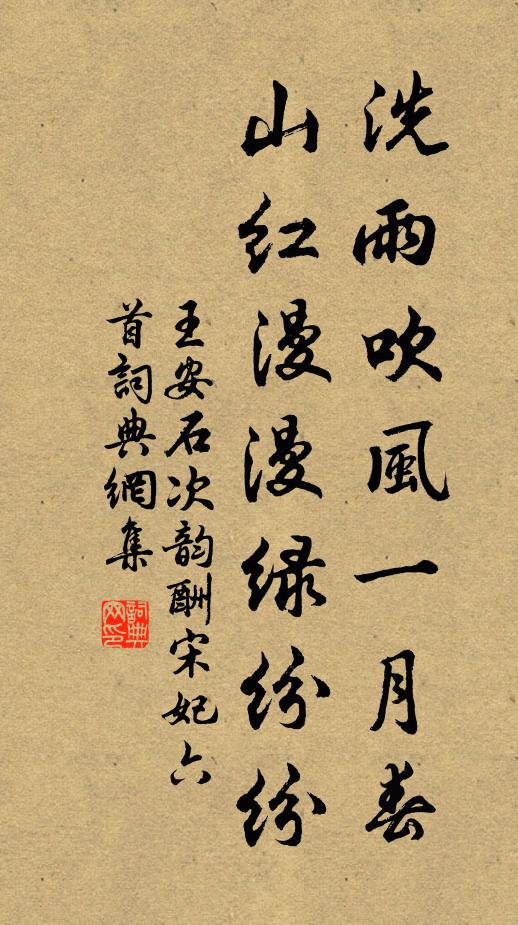 洗雨吹風一月春
山紅漫漫緑紛紛
王安石次韵酬宋妃六
首詞典網集
詞典網印